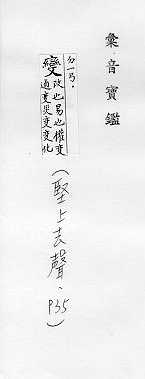 彙音寶鑑
ㄅㄧㄢˋ
變 改也易也權變
通變災變變化
(堅上去聲、P35)